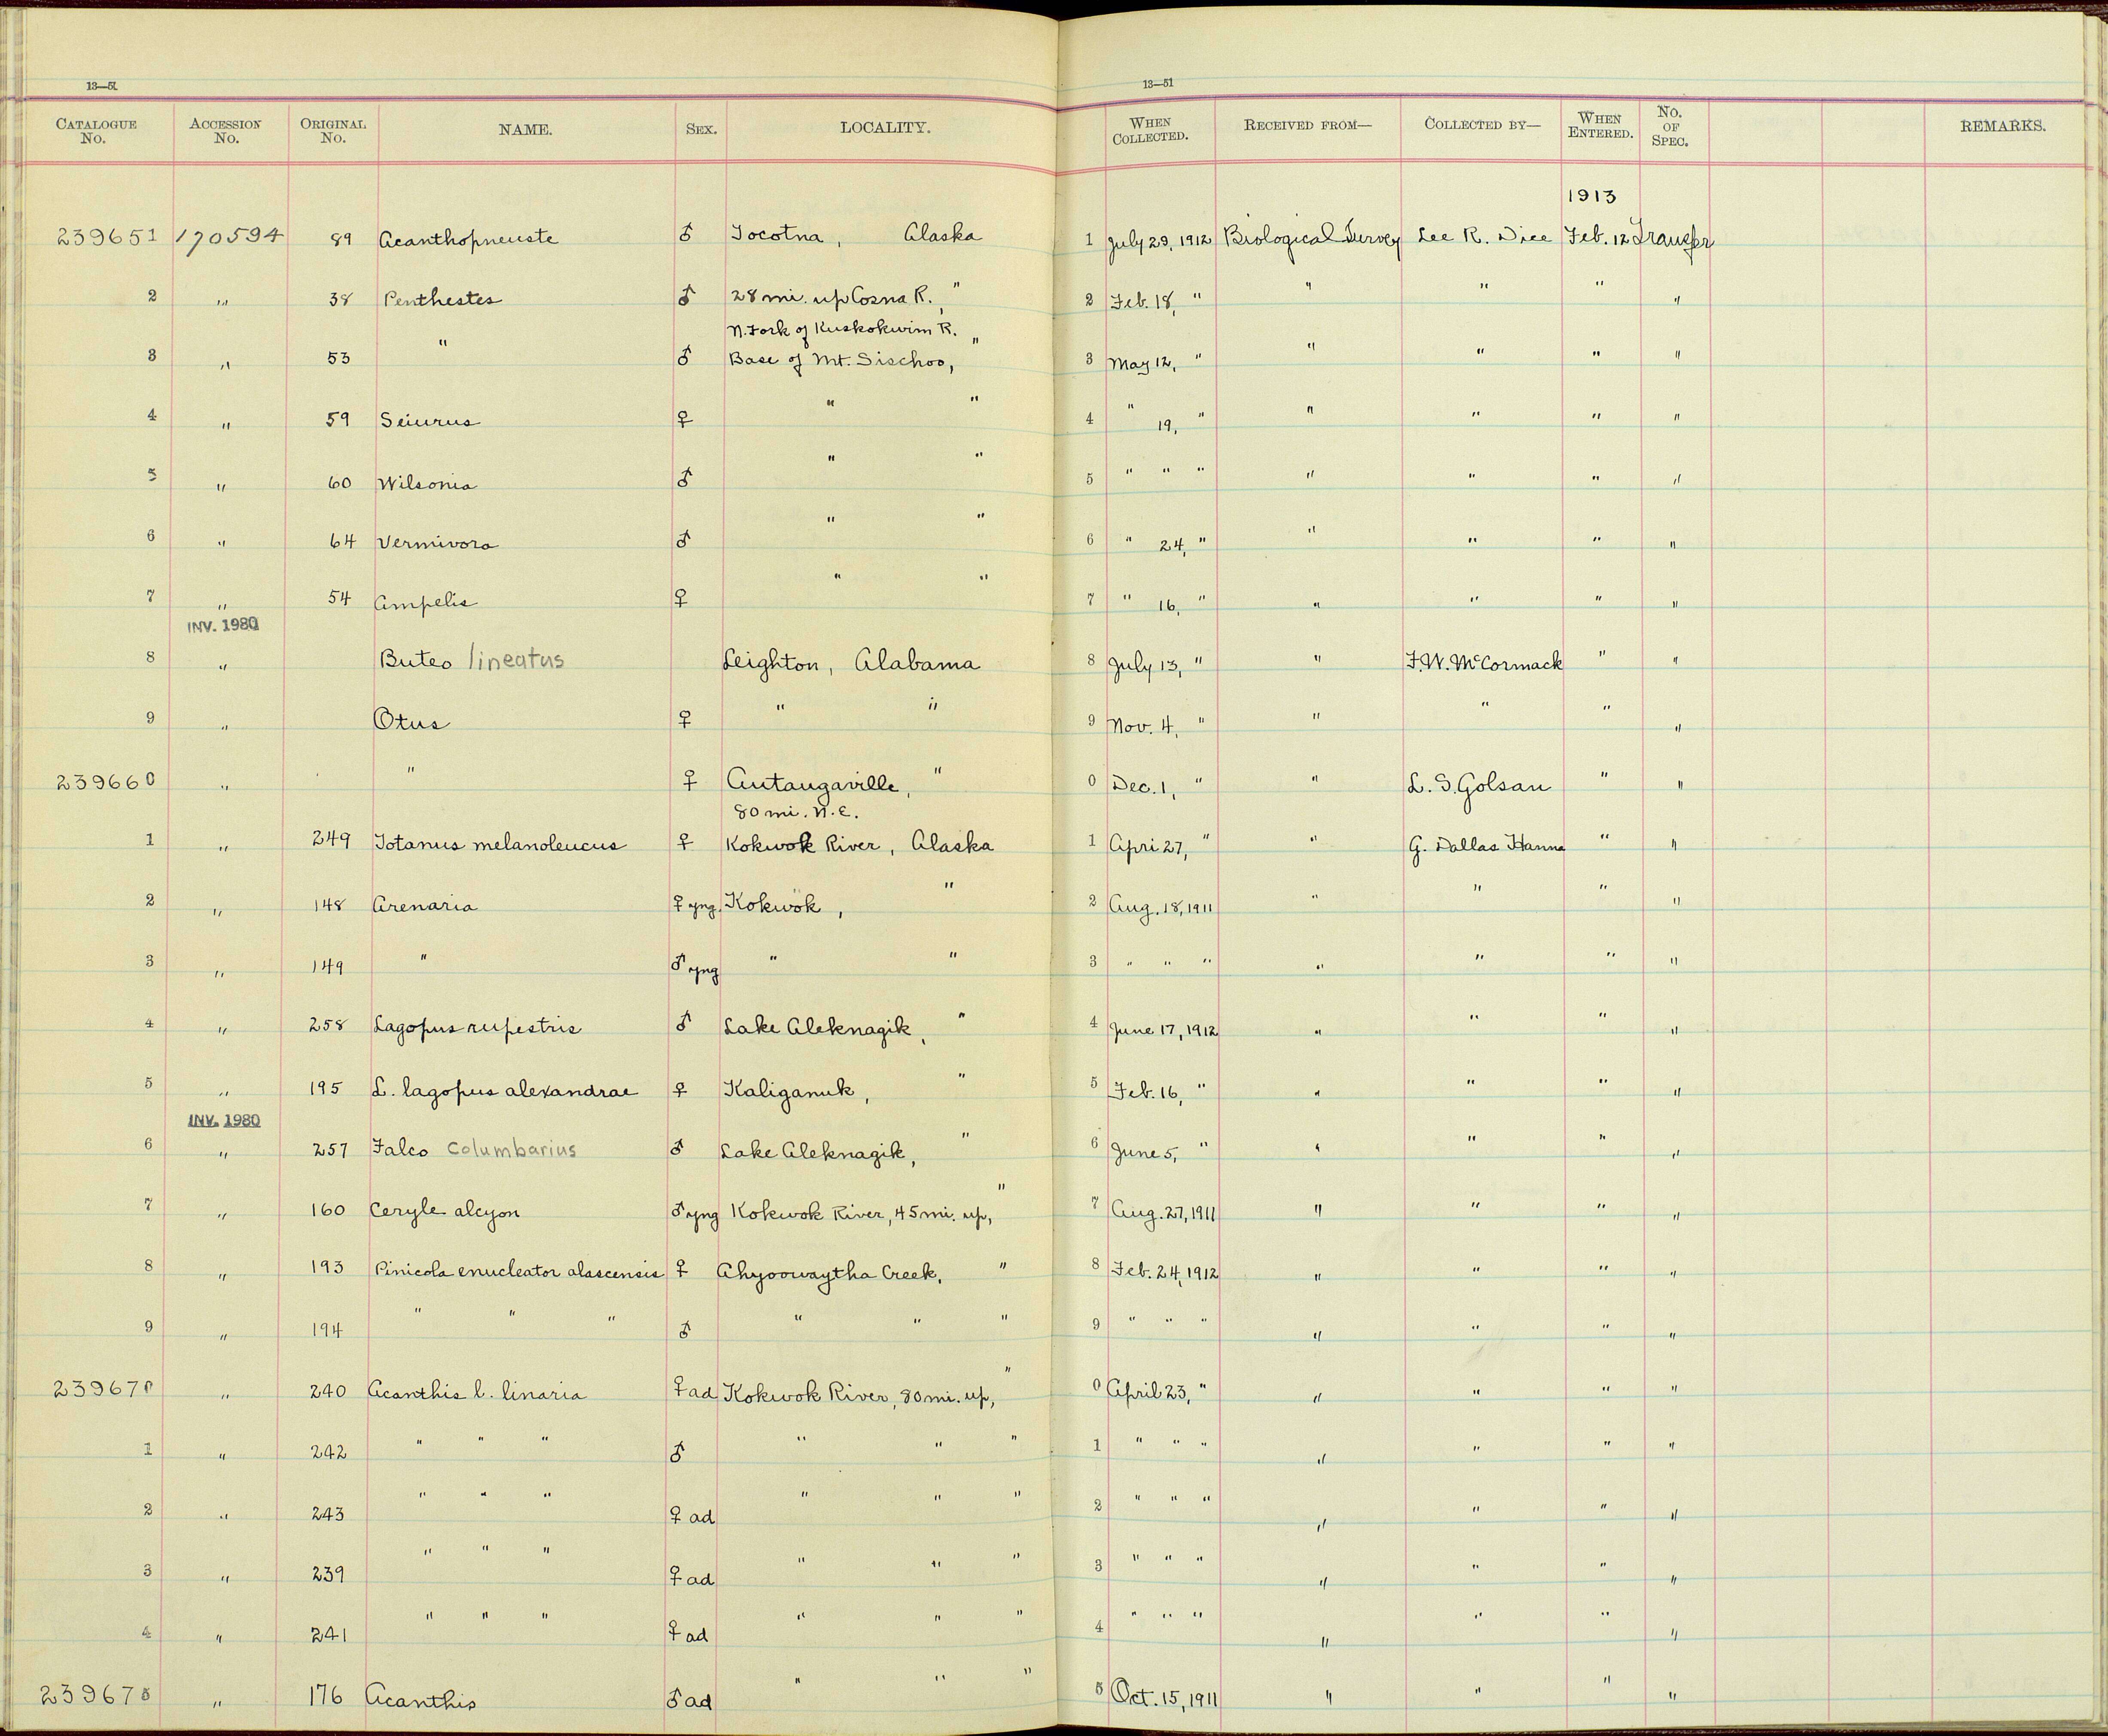 13—51 13—51
CATALOGUE No. ACCESSION No. ORIGINAL No. NAME. SEX. LOCALITY. WHEN COLLECTED. RECEIVED FROM— COLLECTED BY— WHEN ENTERED. No. OF SPEC. REMARKS.
1913
239651 170594 89 Acanthopneuste ♂ Tocotna, Alaska 1 July 29, 1912 Biological Survey Lee R. Dice Feb. 12 Transfer
2 " 38 Penthestes ♂ 28 mi. up Cosna R., " 2 Feb. 18, " " " " "
N. Fork of Kuskokwim R.
3 " 53 " ♂ Base of Mt. Sischoo, " 3 May 12, " " " " "
4 " 59 Seiurus ♀ " " 4 " 19, " " " " "
5 " 60 Wilsonia ♂ " " 5 " " " " " " "
6 " 64 Vermivora ♂ " " 6 " 24, " " " " "
7 " 54 Ampelis ♀ " " 7 " 16, " " " " "
INV. 1980
8 " Buteo lineatus Leighton, Alabama 8 July 13, " " F. W. McCormack " "
9 " Otus ♀ " " 9 Nov. 4, " " " " "
239660 " " ♀ Autaugaville, " 0 Dec. 1, " " L. S. Golsan " "
80 mi. N.E.
1 " 249 Totanus melanoleucus ♀ Kokwok River, Alaska 1 Apri 27, " " G. Dallas Hanna " "
2 " 148 Arenaria ♀ yng. Kokwok, " 2 Aug. 18, 1911 " " " "
3 " 149 " ♂ yng " " 3 " " " " " " "
4 " 258 Lagopus rupestris ♂ Lake Aleknagik, " 4 June 17, 1912 " " " "
5 " 195 L. lagopus alexandrae ♀ Kaliganuk, " 5 Feb. 16, " " " " "
INV. 1980
6 " 257 Falco columbarius ♂ Lake Aleknagik, " 6 June 5, " " " " "
7 " 160 Ceryle alcyon ♂ yng Kokwok River, 45 mi. up, " 7 Aug. 27, 1911 " " " "
8 " 193 Pinicola enucleator alascensis ♀ Ahyoowaytha Creek, " 8 Feb. 24, 1912 " " " "
9 " 194 " " " ♂ " " " 9 " " " " " " "
239670 " 240 Acanthis l. linaria ♀ ad Kokwok River, 80 mi. up, " 0 April 23, " " " " "
1 " 242 " " " ♂ " " " 1 " " " " " " "
2 " 243 " " " ♀ ad " " " 2 " " " " " " "
3 " 239 " " " ♀ ad " " " 3 " " " " " " "
4 " 241 " " " ♀ ad " " " 4 " " " " " " "
239675 " 176 Acanthis ♂ ad " " " 5 Oct. 15, 1911 " " " "